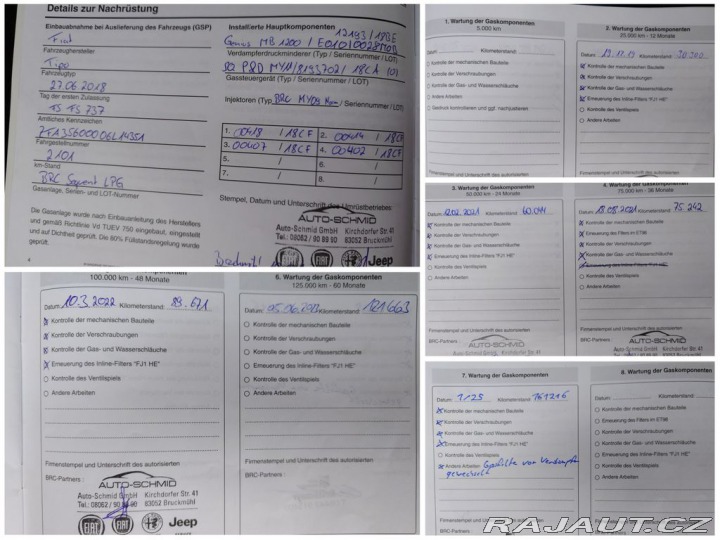 Details zur Nachrüstung
Einbauabnahme bei Auslieferung des Fahrzeugs (GSP)
Fiat
Fahrzeughersteller
Tipo
Fahrzeugtyp
27.06.2018
Tag der ersten Zulassung
TS FS 737
Amtliches Kennzeichen
Fahrgestellnummer
2101
km-Stand
BRC Sequent LPG
Gasanlage, Serien- und LOT-Nummer
Die Gasanlage wurde nach Einbauanleitung des Herstellers
und gemäß Richtlinie Vd TUEV 750 eingebaut, eingestellt
und auf Dichtheit geprüft. Die 80% Füllstandsregelung wurde
geprüft.
Installierte Hauptkomponenten
Genius MB 1200 / E01010028
Verdampferdruckminderer (Typ / Seriennummer / LOT)
Gassteuergerät (Typ / Seriennummer / LOT)
Injektoren (Typ BRC / Seriennummer / LOT)
1. 00418 / 18CF 2. 00414 / 18CF
3. 00407 / 18CF 4. 00402 / 18CF
5. / 6.
7. / 8.
Stempel, Datum und Unterschrift des Umrüstbetriebes:
AUTO-SCHMID
Auto-Schmid GmbH Kirchdorfer Str. 41
Tel.: 08062 / 90 89 90 83052 Bruckmühl
FIAT Jeep
1. Wartung der Gaskomponenten
5.000 km
Kilometerstand
Kontrolle der mechanischen Bauteile
Kontrolle der Verschraubungen
Kontrolle der Gas- und Wasserschläuche
Andere Arbeiten
Gasdruck kontrollieren und ggf. nachjustieren
2. Wartung der Gaskomponenten
25.000 km - 12 Monate
19.11.19 Kilometerstand 30.500
Kontrolle der mechanischen Bauteile
Kontrolle der Verschraubungen
Kontrolle der Gas- und Wasserschläuche
Erneuerung des Inline-Filters "FJ1 HE"
Kontrolle des Ventilspiels
Andere Arbeiten
3. Wartung der Gaskomponenten
50.000 km - 24 Monate
12.02.2021 Kilometerstand 60.041
Kontrolle der mechanischen Bauteile
Kontrolle der Verschraubungen
Kontrolle der Gas- und Wasserschläuche
Erneuerung des Inline-Filters "FJ1 HE"
Kontrolle des Ventilspiels
Andere Arbeiten
AUTO-SCHMID
4. Wartung der Gaskomponenten
75.000 km - 36 Monate
18.08.2021 Kilometerstand 75 242
Kontrolle der mechanischen Bauteile
Erneuerung des Filters im ET98
Kontrolle der Verschraubungen
Kontrolle der Gas- und Wasserschläuche
Erneuerung des Inline-Filters "FJ1 HE"
Kontrolle des Ventilspiels
Andere Arbeiten
Firmenstempel und Unterschrift des autorisierten
BRC-Partners :
AUTO-SCHMID
100.000 km - 48 Monate
Datum: 10.3.2022 Kilometerstand: 89.671
Kontrolle der mechanischen Bauteile
Kontrolle der Verschraubungen
Kontrolle der Gas- und Wasserschläuche
Erneuerung des Inline-Filters "FJ1 HE"
Kontrolle des Ventilspiels
Andere Arbeiten
Firmenstempel und Unterschrift des autorisierten
BRC-Partners :
AUTO-SCHMID
Auto-Schmid GmbH Kirchdorfer Str. 41
Tel.: 08062 / 90 89 90 83052 Bruckmühl
FIAT FIAT Jeep
6. Wartung der Gaskomponenten
125.000 km - 60 Monate
Datum: Kilometerstand: 121663
Kontrolle der mechanischen Bauteile
Kontrolle der Verschraubungen
Kontrolle der Gas- und Wasserschläuche
Erneuerung des Inline-Filters "FJ1 HE"
Kontrolle des Ventilspiels
Andere Arbeiten
Firmenstempel und Unterschrift des autorisierten
BRC-Partners :
7. Wartung der Gaskomponenten
Datum: 1/25 Kilometerstand 161216
Kontrolle der mechanischen Bauteile
Kontrolle der Verschraubungen
Kontrolle der Gas- und Wasserschläuche
Erneuerung des Inline-Filters "FJ1 HE"
Kontrolle des Ventilspiels
Andere Arbeiten Gasfilter von Verdampfer
gewechselt
Firmenstempel und Unterschrift des autorisierten
BRC-Partners :
8. Wartung der Gaskomponenten
Datum: Kilometerstand
Kontrolle der mechanischen Bauteile
Erneuerung des Filters im ET98
Kontrolle der Verschraubungen
Kontrolle der Gas- und Wasserschläuche
Erneuerung des Inline-Filters "FJ1 HE"
Kontrolle des Ventilspiels
Andere Arbeiten
Firmenstempel und Unterschrift des autorisierten
BRC-Partners :
RAJAUT.CZ